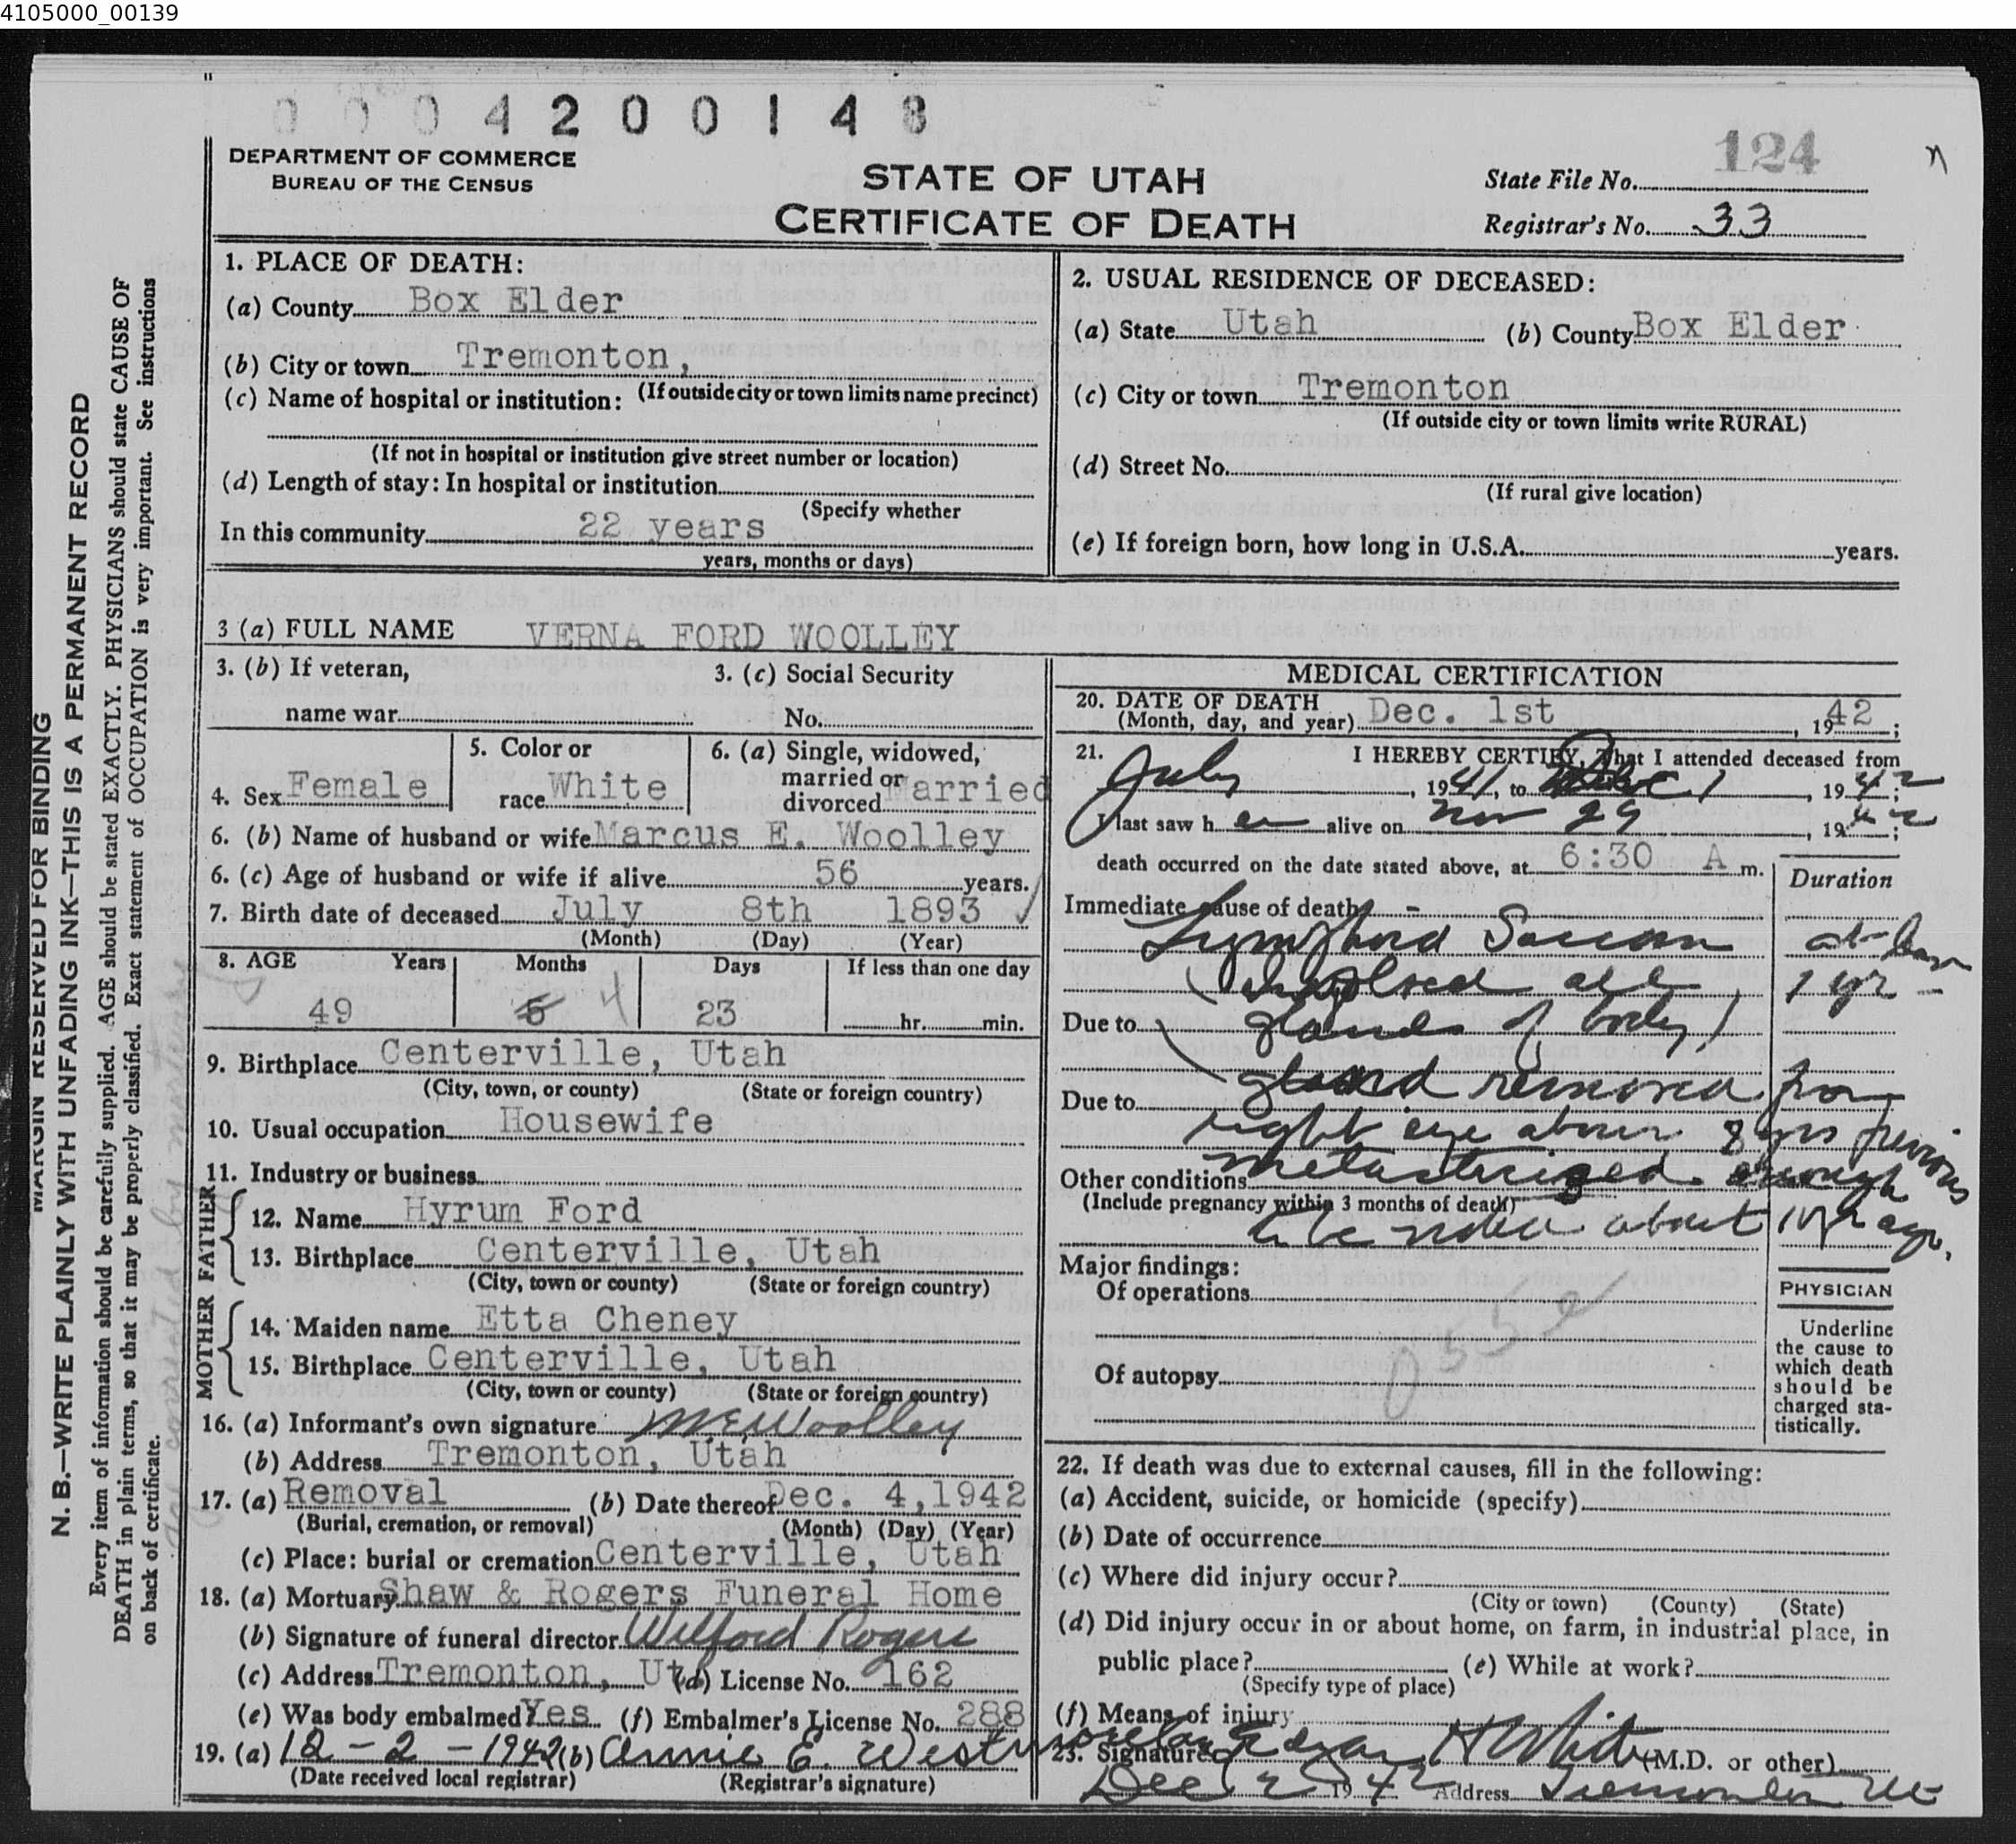 4105000_00139
0 0 0 4 2 0 0 1 4 8
DEPARTMENT OF COMMERCE
BUREAU OF THE CENSUS
STATE OF UTAH
CERTIFICATE OF DEATH
State File No. 124
Registrar's No. 33
MARGIN RESERVED FOR BINDING
N. B.—WRITE PLAINLY WITH UNFADING INK—THIS IS A PERMANENT RECORD
Every item of information should be carefully supplied. AGE should be stated EXACTLY. PHYSICIANS should state CAUSE OF
DEATH in plain terms, so that it may be properly classified. Exact statement of OCCUPATION is very important. See instructions
on back of certificate.
1. PLACE OF DEATH:
(a) County Box Elder
(b) City or town Tremonton,
(c) Name of hospital or institution: (If outside city or town limits name precinct)
(If not in hospital or institution give street number or location)
(d) Length of stay: In hospital or institution
(Specify whether
In this community 22 years
years, months or days)
2. USUAL RESIDENCE OF DECEASED:
(a) State Utah (b) County Box Elder
(c) City or town Tremonton
(If outside city or town limits write RURAL)
(d) Street No.
(If rural give location)
(e) If foreign born, how long in U.S.A. years.
3 (a) FULL NAME VERNA FORD WOOLLEY
3. (b) If veteran,
name war
3. (c) Social Security
No.
4. Sex Female
5. Color or
race White
6. (a) Single, widowed,
married or
divorced Married
6. (b) Name of husband or wife Marcus E. Woolley
6. (c) Age of husband or wife if alive 56 years.
7. Birth date of deceased July 8th 1893 ✓
(Month) (Day) (Year)
8. AGE Years Months Days If less than one day
49 5 4 23 hr. min.
9. Birthplace Centerville, Utah
(City, town, or county) (State or foreign country)
10. Usual occupation Housewife
11. Industry or business
FATHER
12. Name Hyrum Ford
13. Birthplace Centerville, Utah
(City, town or county) (State or foreign country)
MOTHER
14. Maiden name Etta Cheney
15. Birthplace Centerville, Utah
(City, town or county) (State or foreign country)
16. (a) Informant's own signature M E Woolley
(b) Address Tremonton, Utah
17. (a) Removal (b) Date thereof Dec. 4, 1942
(Burial, cremation, or removal) (Month) (Day) (Year)
(c) Place: burial or cremation Centerville, Utah
18. (a) Mortuary Shaw & Rogers Funeral Home
(b) Signature of funeral director Wilford Rogers
(c) Address Tremonton, Ut (d) License No. 162
(e) Was body embalmed? Yes (f) Embalmer's License No. 288
19. (a) 12 - 2 - 1942 (b) Annie E. Westmoreland
(Date received local registrar) (Registrar's signature)
MEDICAL CERTIFICATION
20. DATE OF DEATH
(Month, day, and year) Dec. 1st, 1942;
21. I HEREBY CERTIFY, That I attended deceased from
July, 1941, to Dec 1, 1942;
I last saw her alive on Nov 29, 1942;
death occurred on the date stated above, at 6:30 A m.
Duration
Immediate cause of death
Lymphoid Sarcom at least
(Involved all 1 yr -
Due to glands of body)
Due to gland removed from
right eye about 8 yrs previous
Other conditions metastasized enough
(Include pregnancy within 3 months of death)
to be noted about 1 yr ago.
Major findings:
Of operations
Of autopsy
PHYSICIAN
Underline
the cause to
which death
should be
charged sta-
tistically.
22. If death was due to external causes, fill in the following:
(a) Accident, suicide, or homicide (specify)
(b) Date of occurrence
(c) Where did injury occur?
(City or town) (County) (State)
(d) Did injury occur in or about home, on farm, in industrial place, in
public place? (e) While at work?
(Specify type of place)
(f) Means of injury
23. Signature Edgar H White (M.D. or other)
Dec 2 1942 Address Tremonton Ut